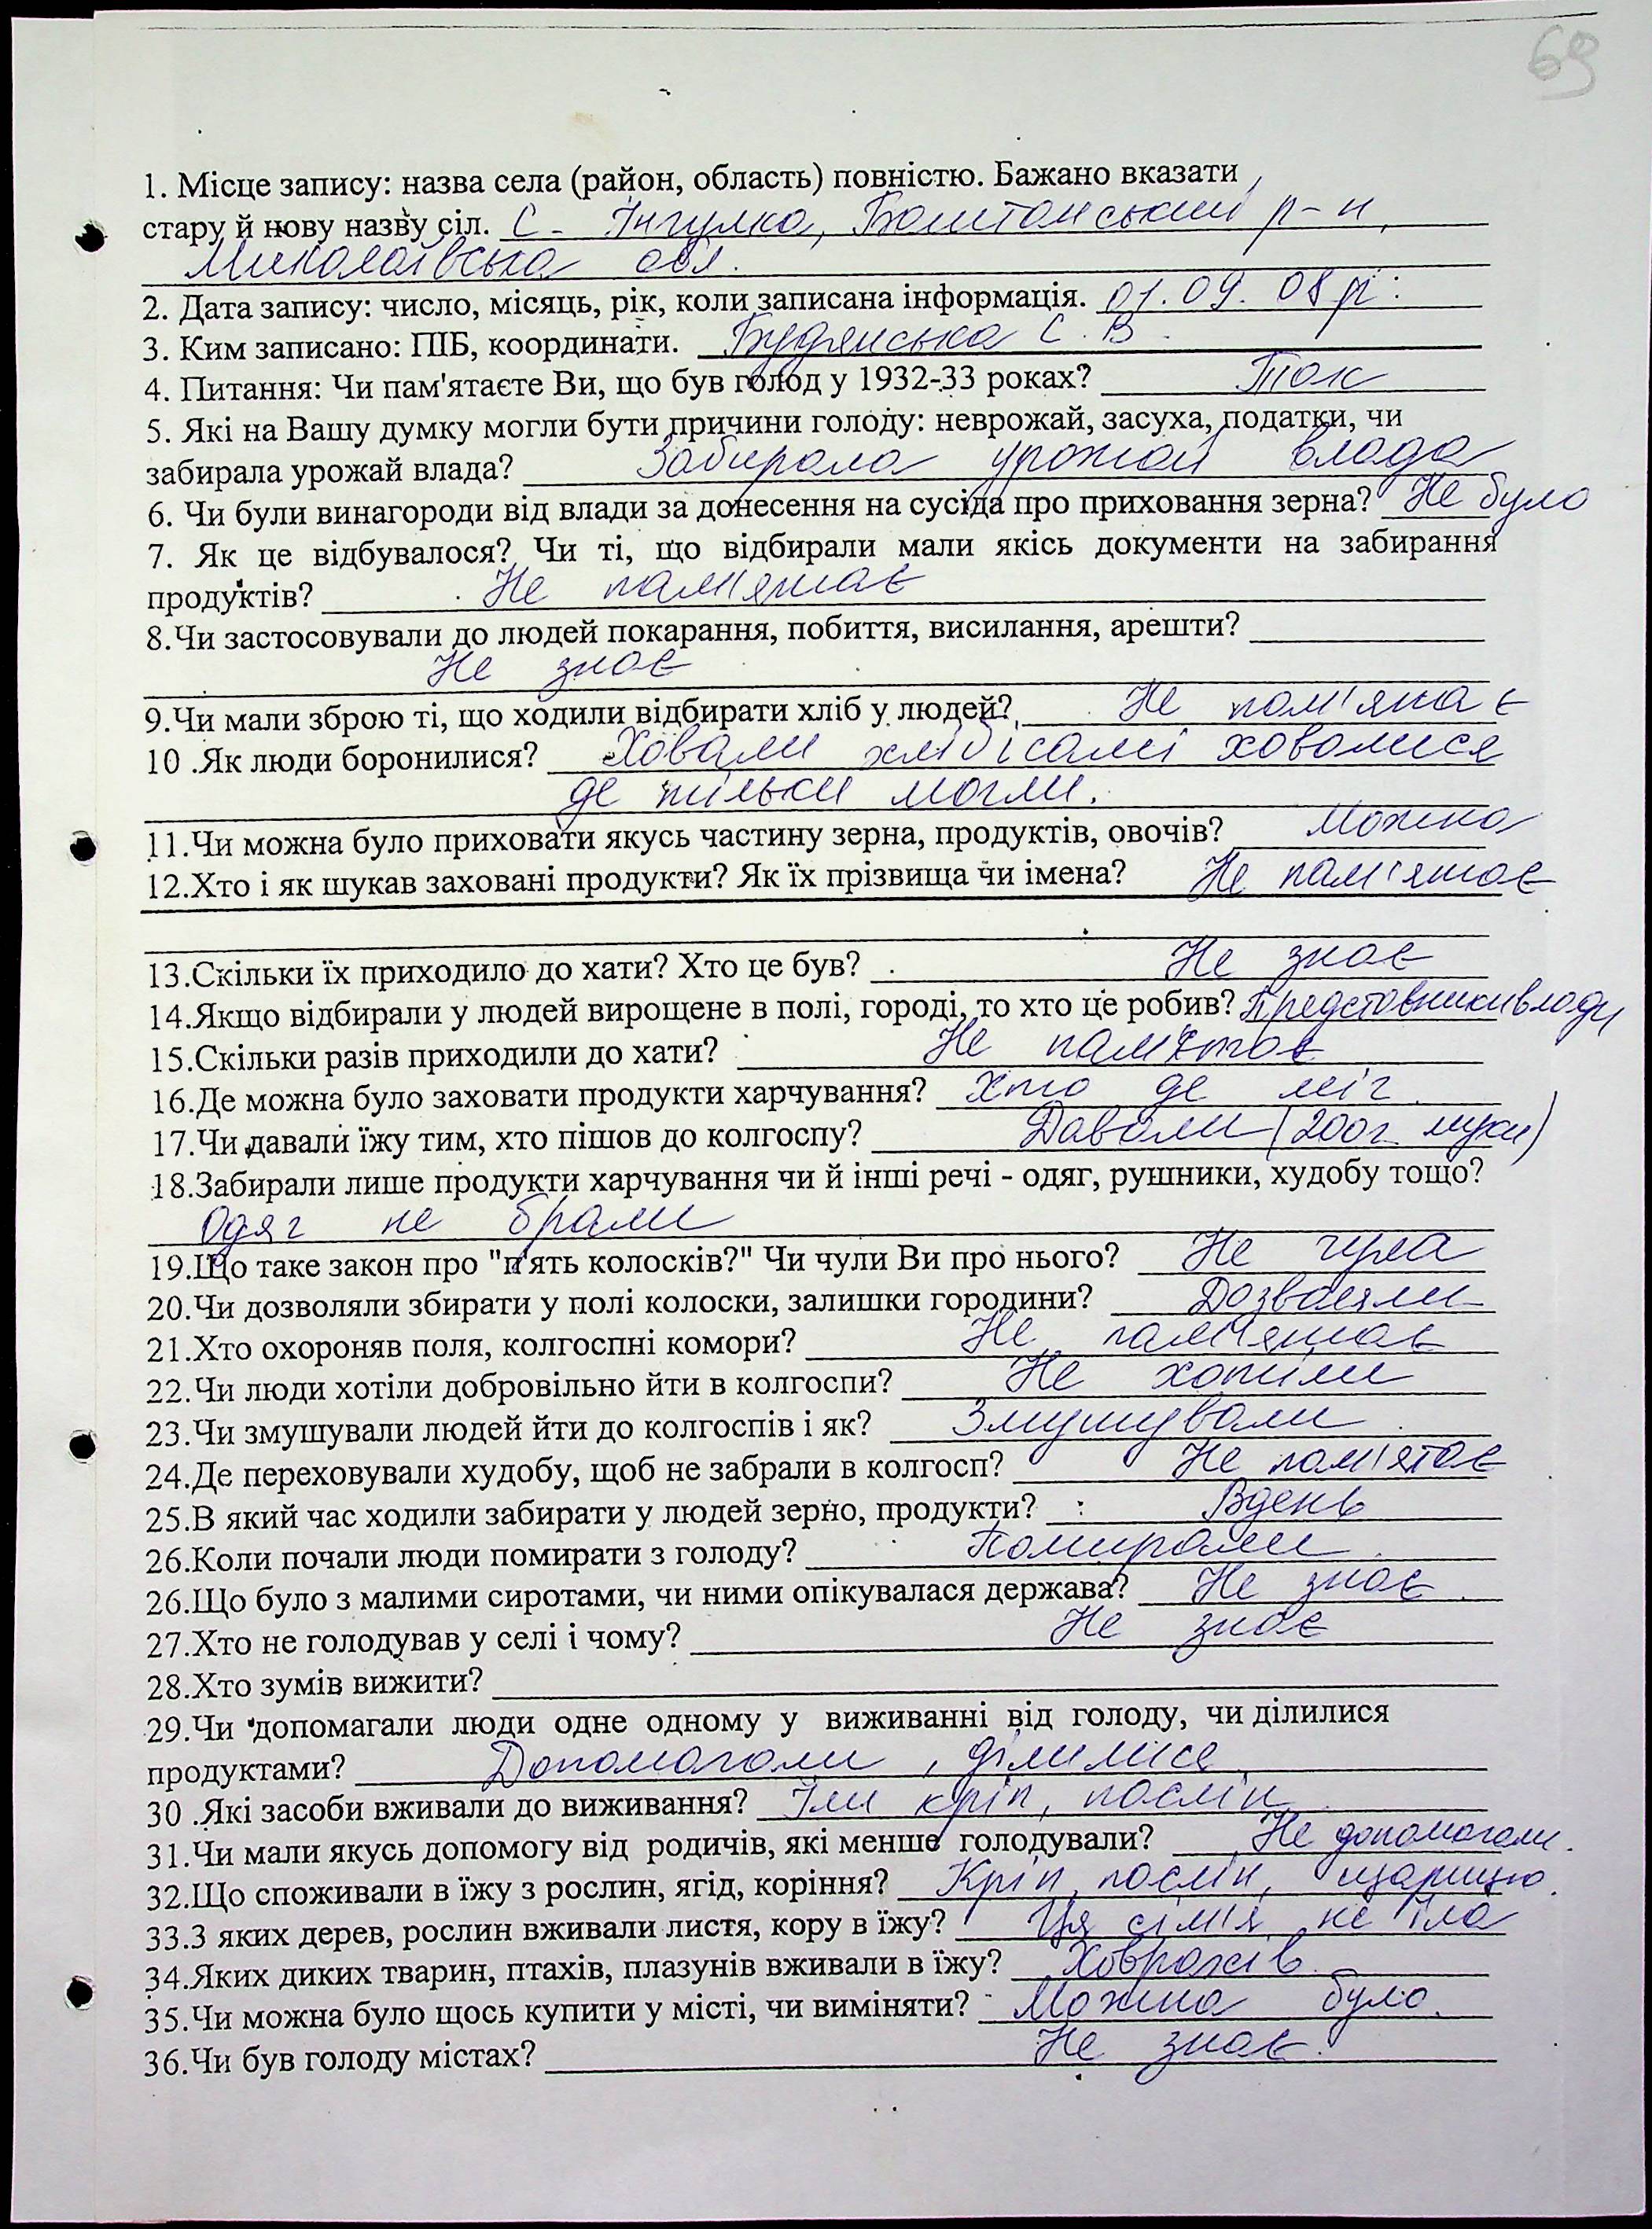 69
1. Місце запису: назва села (район, область) повністю. Бажано вказати
стару й нову назву сіл. с. Інгулка, Баштанський р-н,
Миколаївська обл.
2. Дата запису: число, місяць, рік, коли записана інформація. 01.09.08 р.
3. Ким записано: ПІБ, координати. Будянська С. В.
4. Питання: Чи пам'ятаєте Ви, що був голод у 1932-33 роках? Так
5. Які на Вашу думку могли бути причини голоду: неврожай, засуха, податки, чи
забирала урожай влада? Забирала урожай влада
6. Чи були винагороди від влади за донесення на сусіда про приховання зерна? Не було
7. Як це відбувалося? Чи ті, що відбирали мали якісь документи на забирання
продуктів? Не пам'ятає
8.Чи застосовували до людей покарання, побиття, висилання, арешти?
Не знає
9.Чи мали зброю ті, що ходили відбирати хліб у людей? Не пам'ятає
10 .Як люди боронилися? Ховали хліб і самі ховалися
де тільки могли.
11.Чи можна було приховати якусь частину зерна, продуктів, овочів? Можна
12.Хто і як шукав заховані продукти? Як їх прізвища чи імена? Не пам'ятає
13.Скільки їх приходило до хати? Хто це був? Не знає
14.Якщо відбирали у людей вирощене в полі, городі, то хто це робив? Представники влади
15.Скільки разів приходили до хати? Не пам'ятає
16.Де можна було заховати продукти харчування? Хто де міг.
17.Чи давали їжу тим, хто пішов до колгоспу? Давали (200 г. муки)
18.Забирали лише продукти харчування чи й інші речі - одяг, рушники, худобу тощо?
Одяг не брали
19.Що таке закон про "п'ять колосків?" Чи чули Ви про нього? Не чула
20.Чи дозволяли збирати у полі колоски, залишки городини? Дозваляли
21.Хто охороняв поля, колгоспні комори? Не пам'ятає
22.Чи люди хотіли добровільно йти в колгоспи? Не хотіли
23.Чи змушували людей йти до колгоспів і як? Змушували
24.Де переховували худобу, щоб не забрали в колгосп? Не пам'ятає
25.В який час ходили забирати у людей зерно, продукти? Вдень
26.Коли почали люди помирати з голоду? Помирали.
26.Що було з малими сиротами, чи ними опікувалася держава? Не знає.
27.Хто не голодував у селі і чому? Не знає
28.Хто зумів вижити?
29.Чи допомагали люди одне одному у виживанні від голоду, чи ділилися
продуктами? Допомагали, ділилися
30 .Які засоби вживали до виживання? Їли кріп, паслін.
31.Чи мали якусь допомогу від родичів, які менше голодували? Не допомагали.
32.Що споживали в їжу з рослин, ягід, коріння? Кріп, паслін, щирицю.
33.З яких дерев, рослин вживали листя, кору в їжу? Ця сім'я не їла
34.Яких диких тварин, птахів, плазунів вживали в їжу? Ховрахів.
35.Чи можна було щось купити у місті, чи виміняти? Можна було.
36.Чи був голоду містах? Не знає.